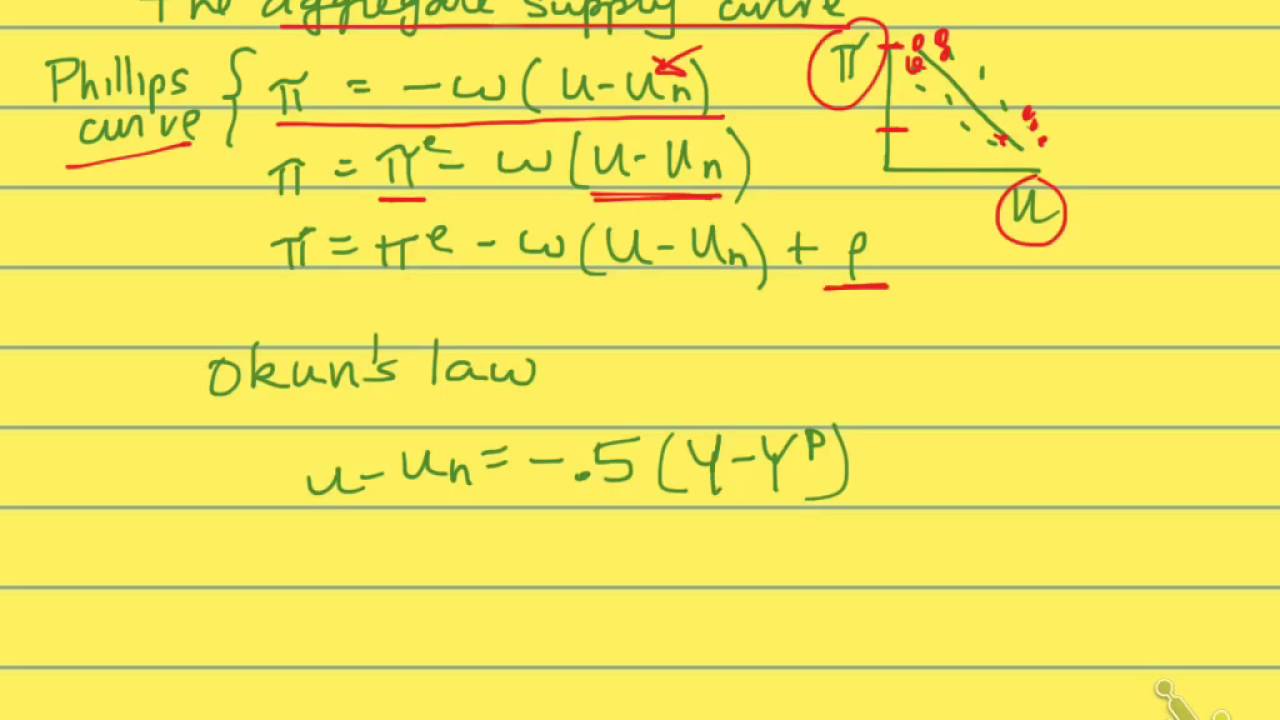 The aggregate supply curve
Phillips curve { π = -ω(u-un)
π = πᵉ - ω(u-un)
π = πᵉ - ω(u-un) + ρ
π
u
Okun's law
u-un = -.5(Y-Yᴾ)